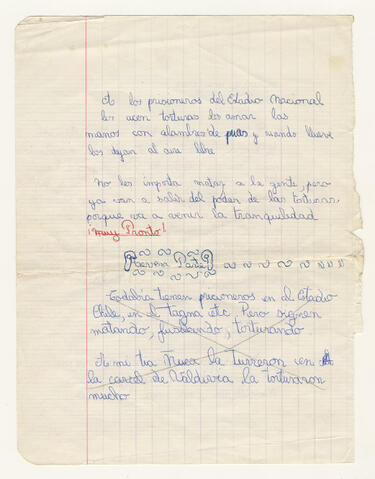 A los prisioneros del Estadio Nacional
les acen torturas les amar las
manos con alambres de puas y cuando llueve
los dejan al aire libre
No les importa matar a la gente, pero
ya van a salir del poder de las torturas,
porque va a venir la tranquilidad
¡Muy Pronto!
Todabia tienen pricioneros en el Estadio
Chile, en el tagna etc. Pero siguen
matando, fucilando, torturando
A mi tia Nueca la tuvieron en
la carcel de Valdivia la torturaron
mucho